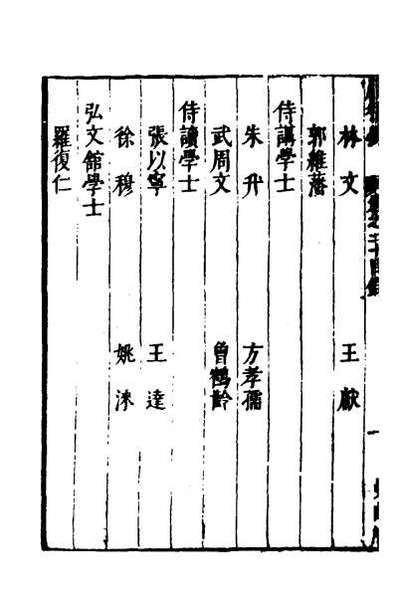 林文 王獻
郭維藩
侍講學士
朱升 方孝孺
武周文 曾鶴齡
侍讀學士
張以寧 王達
徐穆 姚淶
弘文館學士
羅復仁